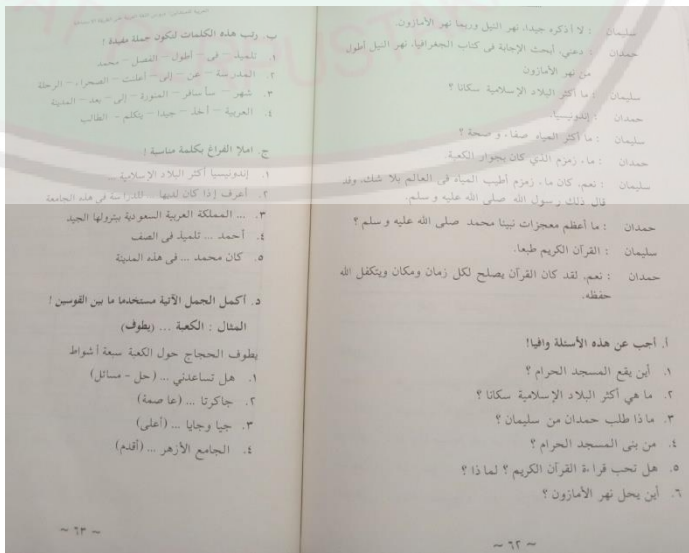 سليمان : لا أذكره جيدا، نهر النيل وربما نهر الأمازون.
حمدان : دعني، أبحث الإجابة فى كتاب الجغرافيا، نهر النيل أطول
من نهر الأمازون
سليمان : ما أكثر البلاد الإسلامية سكانا ؟
حمدان : إندونيسيا.
سليمان : ما أكثر المياه صفاء و صحة ؟
حمدان : ماء زمزم الذي كان بجوار الكعبة.
سليمان : نعم، كان ماء زمزم أطيب المياه فى العالم بلا شك، وقد
قال ذلك رسول الله صلى الله عليه و سلم.
حمدان : ما أعظم معجزات نبينا محمد صلى الله عليه و سلم ؟
سليمان : القرآن الكريم طبعا.
حمدان : نعم، لقد كان القرآن يصلح لكل زمان ومكان ويتكفل الله
حفظه.
أ. أجب عن هذه الأسئلة وافيا!
١. أين يقع المسجد الحرام ؟
٢. ما هي أكثر البلاد الإسلامية سكانا ؟
٣. ما ذا طلب حمدان من سليمان ؟
٤. من بنى المسجد الحرام ؟
٥. هل تحب قراءة القرآن الكريم ؟ لما ذا ؟
٦. أين يحل نهر الأمازون ؟
~ ٦٢ ~
ب. رتب هذه الكلمات لتكون جملة مفيدة !
١. تلميذ – فى – أطول – الفصل – محمد
٢. المدرسة – عن – إلى – أعلنت – الصحراء – الرحلة
٣. شهر – سأسافر – المنورة – إلى – بعد – المدينة
٤. العربية – أحد – جيدا – يتكلم – الطالب
ج. املأ الفراغ بكلمة مناسبة !
١. إندونيسيا أكثر البلاد الإسلامية ...
٢. أعرف إذا كان لديها ... للدراسة فى هذه الجامعة
٣. ... المملكة العربية السعودية ببترولها الجيد
٤. أحمد ... تلميذ فى الصف
٥. كان محمد ... فى هذه المدينة
د. أكمل الجمل الآتية مستخدما ما بين القوسين !
المثال : الكعبة ... (يطوف)
يطوف الحجاج حول الكعبة سبعة أشواط
١. هل تساعدني ... (حل - مسائل)
٢. جاكرتا ... (عاصمة)
٣. جيا وجايا ... (أعلى)
٤. الجامع الأزهر ... (أقدم)
~ ٦٣ ~